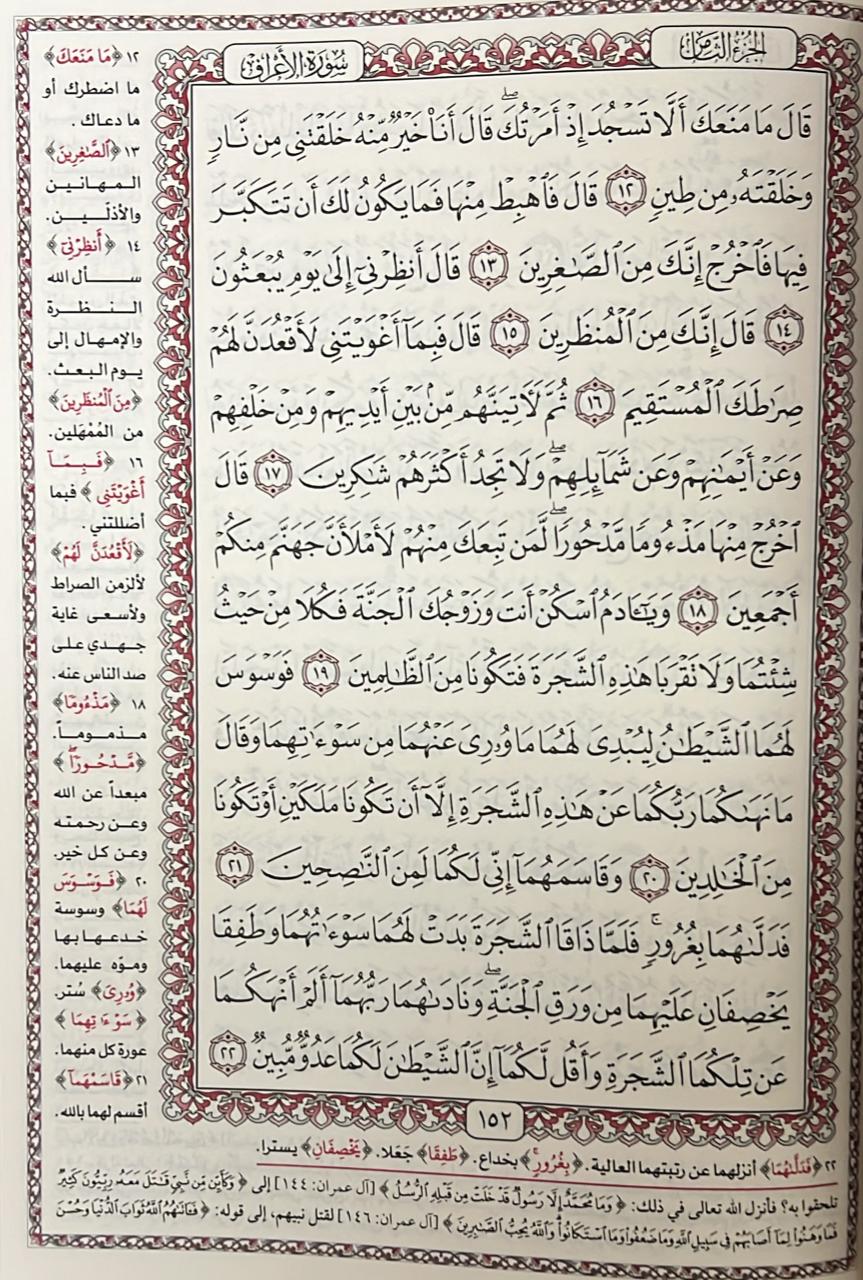 الجزء الثامن
سورة الأعراف
قَالَ مَا مَنَعَكَ أَلَّا تَسْجُدَ إِذْ أَمَرْتُكَ ۖ قَالَ أَنَا۠ خَيْرٌ مِّنْهُ خَلَقْتَنِى مِن نَّارٍ
وَخَلَقْتَهُۥ مِن طِينٍ ١٢ قَالَ فَٱهْبِطْ مِنْهَا فَمَا يَكُونُ لَكَ أَن تَتَكَبَّرَ
فِيهَا فَٱخْرُجْ إِنَّكَ مِنَ ٱلصَّٰغِرِينَ ١٣ قَالَ أَنظِرْنِىٓ إِلَىٰ يَوْمِ يُبْعَثُونَ
١٤ قَالَ إِنَّكَ مِنَ ٱلْمُنظَرِينَ ١٥ قَالَ فَبِمَآ أَغْوَيْتَنِى لَأَقْعُدَنَّ لَهُمْ
صِرَٰطَكَ ٱلْمُسْتَقِيمَ ١٦ ثُمَّ لَءَاتِيَنَّهُم مِّنۢ بَيْنِ أَيْدِيهِمْ وَمِنْ خَلْفِهِمْ
وَعَنْ أَيْمَٰنِهِمْ وَعَن شَمَآئِلِهِمْ ۖ وَلَا تَجِدُ أَكْثَرَهُمْ شَٰكِرِينَ ١٧ قَالَ
ٱخْرُجْ مِنْهَا مَذْءُومًا مَّدْحُورًا ۖ لَّمَن تَبِعَكَ مِنْهُمْ لَأَمْلَأَنَّ جَهَنَّمَ مِنكُمْ
أَجْمَعِينَ ١٨ وَيَٰٓـَٔادَمُ ٱسْكُنْ أَنتَ وَزَوْجُكَ ٱلْجَنَّةَ فَكُلَا مِنْ حَيْثُ
شِئْتُمَا وَلَا تَقْرَبَا هَٰذِهِ ٱلشَّجَرَةَ فَتَكُونَا مِنَ ٱلظَّٰلِمِينَ ١٩ فَوَسْوَسَ
لَهُمَا ٱلشَّيْطَٰنُ لِيُبْدِىَ لَهُمَا مَا وُۥرِىَ عَنْهُمَا مِن سَوْءَٰتِهِمَا وَقَالَ
مَا نَهَىٰكُمَا رَبُّكُمَا عَنْ هَٰذِهِ ٱلشَّجَرَةِ إِلَّآ أَن تَكُونَا مَلَكَيْنِ أَوْ تَكُونَا
مِنَ ٱلْخَٰلِدِينَ ٢٠ وَقَاسَمَهُمَآ إِنِّى لَكُمَا لَمِنَ ٱلنَّٰصِحِينَ ٢١
فَدَلَّىٰهُمَا بِغُرُورٍ ۚ فَلَمَّا ذَاقَا ٱلشَّجَرَةَ بَدَتْ لَهُمَا سَوْءَٰتُهُمَا وَطَفِقَا
يَخْصِفَانِ عَلَيْهِمَا مِن وَرَقِ ٱلْجَنَّةِ ۖ وَنَادَىٰهُمَا رَبُّهُمَآ أَلَمْ أَنْهَكُمَا
عَن تِلْكُمَا ٱلشَّجَرَةِ وَأَقُل لَّكُمَآ إِنَّ ٱلشَّيْطَٰنَ لَكُمَا عَدُوٌّ مُّبِينٌ ٢٢
١٥٢
١٢ ﴿مَا مَنَعَكَ﴾
ما اضطرك أو
ما دعاك.
١٣ ﴿ٱلصَّٰغِرِينَ﴾
المهانين
والأذلّين.
١٤ ﴿أَنظِرْنِىٓ﴾
سأل الله
النظرة
والإمهال إلى
يوم البعث.
﴿مِنَ ٱلْمُنظَرِينَ﴾
من المُمْهَلين.
١٦ ﴿فَبِمَآ
أَغْوَيْتَنِى﴾ فبما
أضللتني.
﴿لَأَقْعُدَنَّ لَهُمْ﴾
لألزمن الصراط
ولأسعى غاية
جهدي على
صد الناس عنه.
١٨ ﴿مَذْءُومًا﴾
مذموماً.
﴿مَّدْحُورًا ۖ﴾
مبعداً عن الله
وعن رحمته
وعن كل خير.
٢٠ ﴿فَوَسْوَسَ
لَهُمَا﴾ وسوسة
خدعها بها
وموّه عليهما.
﴿وُۥرِىَ﴾ سُتر.
﴿سَوْءَٰتِهِمَا﴾
عورة كل منهما.
٢١ ﴿قَاسَمَهُمَآ﴾
أقسم لهما بالله.
٢٢ ﴿فَدَلَّىٰهُمَا﴾ أنزلهما عن رتبتهما العالية. ﴿بِغُرُورٍ ۚ﴾ بخداع. ﴿طَفِقَا﴾ جَعَلا. ﴿يَخْصِفَانِ﴾ يسترا.
تلحقوا به؟ فأنزل الله تعالى في ذلك: ﴿وَمَا مُحَمَّدٌ إِلَّا رَسُولٌ قَدْ خَلَتْ مِن قَبْلِهِ ٱلرُّسُلُ﴾ [آل عمران: ١٤٤] إلى ﴿وَكَأَيِّن مِّن نَّبِىٍّ قَٰتَلَ مَعَهُۥ رِبِّيُّونَ كَثِيرٌ
فَمَا وَهَنُوا۟ لِمَآ أَصَابَهُمْ فِى سَبِيلِ ٱللَّهِ وَمَا ضَعُفُوا۟ وَمَا ٱسْتَكَانُوا۟ وَٱللَّهُ يُحِبُّ ٱلصَّٰبِرِينَ﴾ [آل عمران: ١٤٦] لقتل نبيهم، إلى قوله: ﴿فَـَٔاتَىٰهُمُ ٱللَّهُ ثَوَابَ ٱلدُّنْيَا وَحُسْنَ